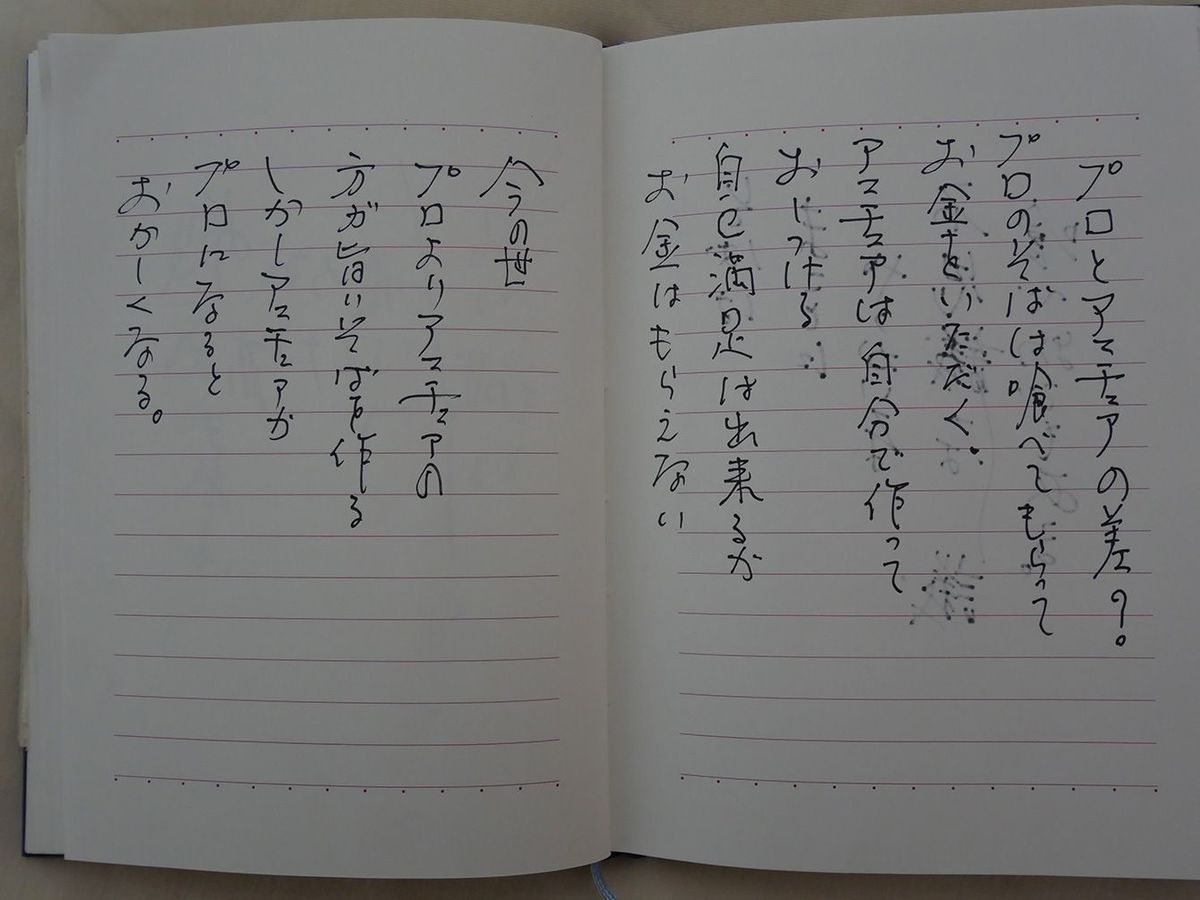 プロとアマチュアの差?。
プロのそばは喰べてもらって
お金をいただく。
アマチュアは自分で作って
おしつける。
自己満足は出来るか
お金はもらえない
今の世
プロよりアマチュアの
方が旨いそばを作る
しかしアマチュアが
プロになると
おかしくなる。